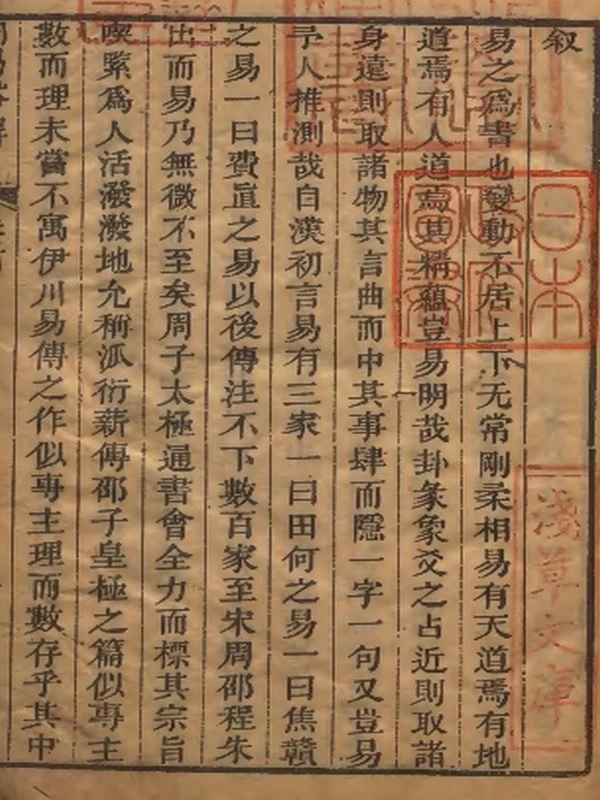 叙
易之爲書也變動不居上下无常剛柔相易有天道焉有地
道焉有人道焉其精蘊豈易明哉卦彖象爻之占近則取諸
身遠則取諸物其言曲而中其事肆而隱一字一句又豈易
予人推測哉自漢初言易有三家一曰田何之易一曰焦贛
之易一曰費直之易以後傳注不下數百家至宋周邵程朱
出而易乃無微不至矣周子太極通書會全力而標其宗旨
喫緊爲人活潑潑地允稱泒衍薪傳邵子皇極之篇似專主
數而理未嘗不寓伊川易傳之作似專主理而數存乎其中
日本
淺草文庫